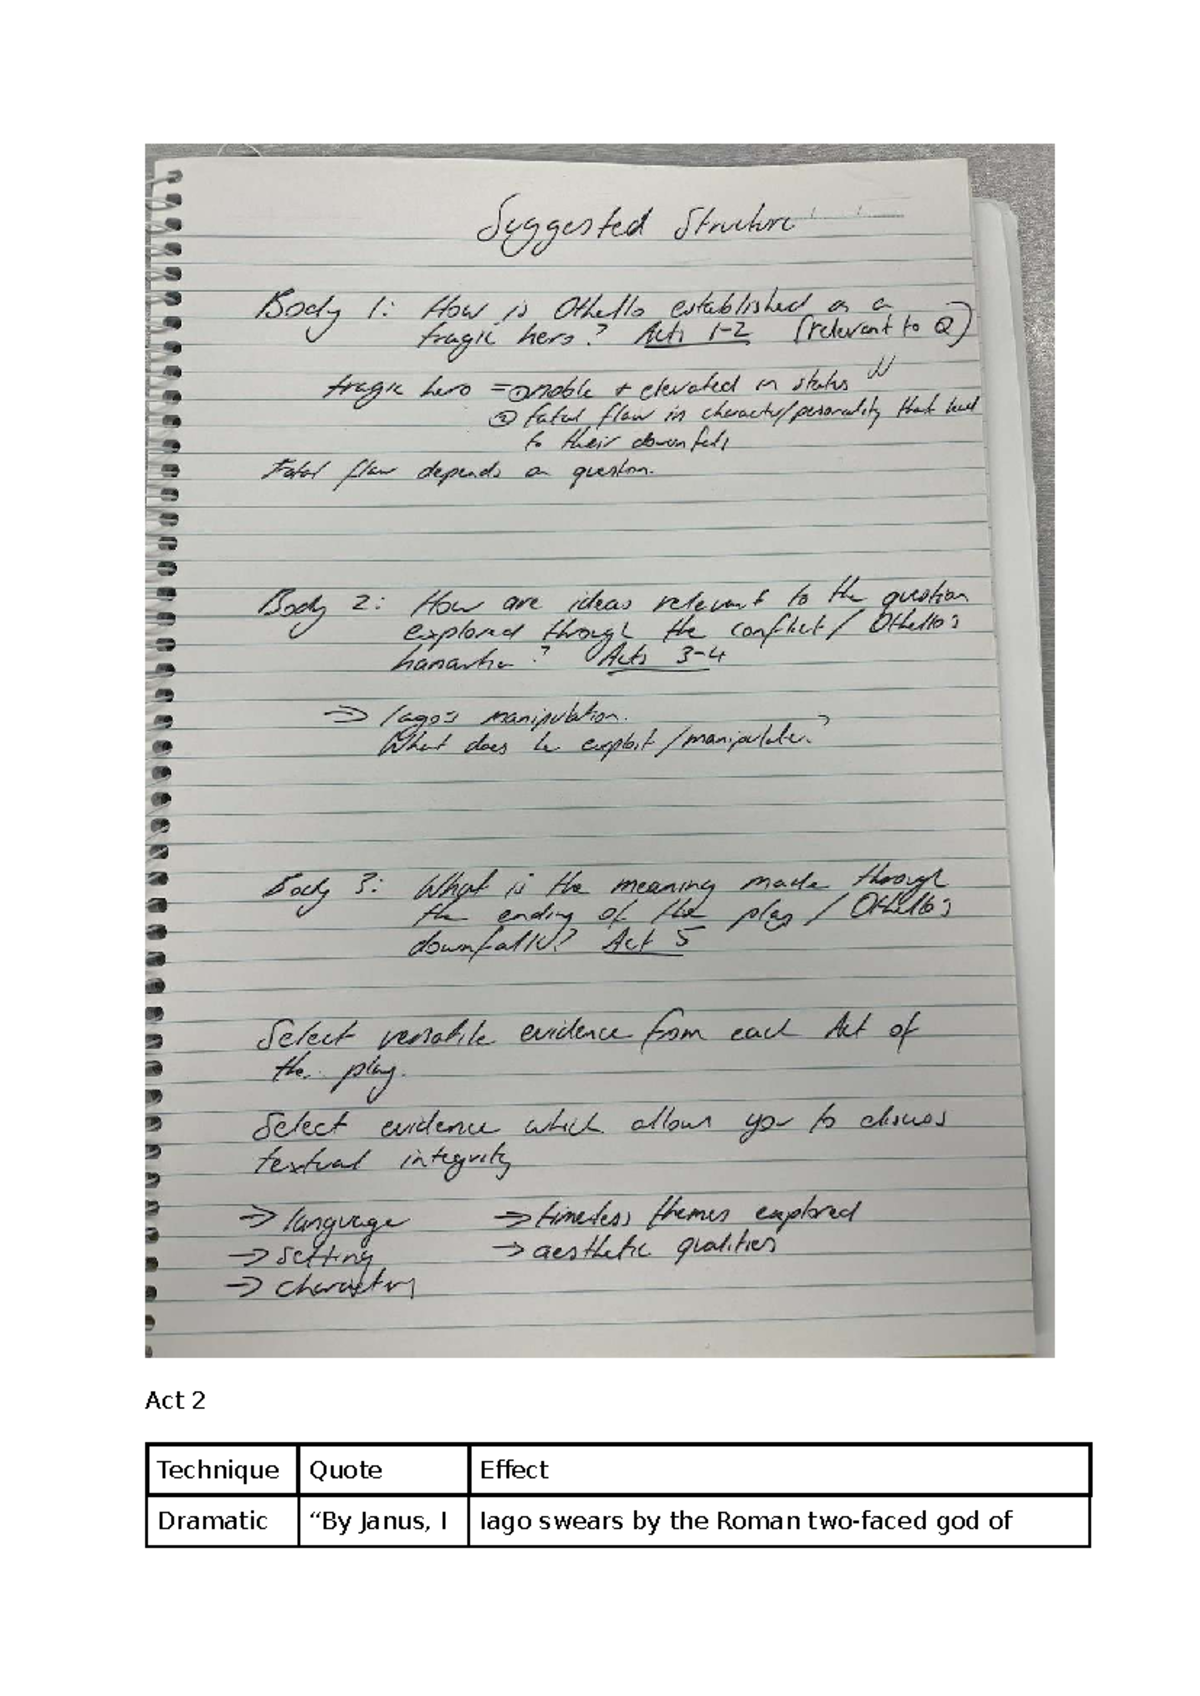 Suggested Structure
Body 1: How is Othello established as a
tragic hero? Acts 1-2 (relevant to Q)
tragic hero = ① noble + elevated in status
② fatal flaw in character/personality that lead
to their downfall
Fatal flaw depends on question.
Body 2: How are ideas relevant to the question
explored through the conflict / Othello's
hamartia? Acts 3-4
→ Iago's manipulation.
What does he exploit / manipulate?
Body 3: What is the meaning made through
the ending of the play / Othello's
downfall? Act 5
Select versatile evidence from each Act of
the play.
Select evidence which allows you to discuss
textual integrity
→ language → timeless themes explored
→ setting → aesthetic qualities
→ characters
Act 2
Technique Quote Effect
Dramatic “By Janus, I Iago swears by the Roman two-faced god of